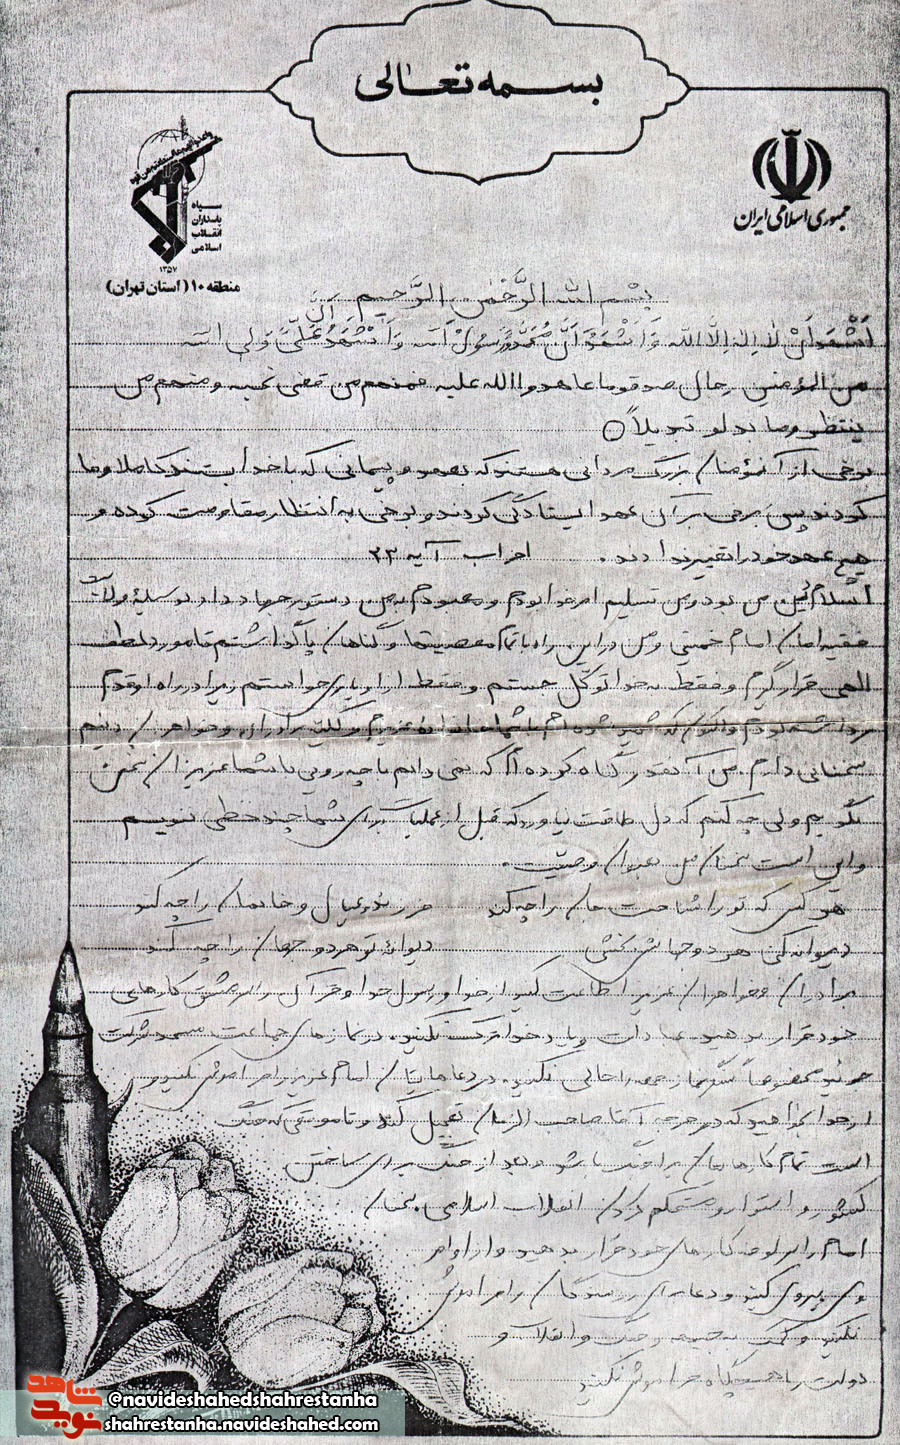 بسمه تعالی
جمهوری اسلامی ایران
سپاه
پاسداران
انقلاب
اسلامی
۱۳۵۷
منطقه ۱۰ (استان تهران)
بسم الله الرَّحْمٰن الرَّحیم
اَشْهَدُ اَنْ لا اِلهَ اِلَّا الله وَ اَشْهَدُ اَنَّ مُحَمَّداً رَسُولُ الله وَ اَشْهَدُ اَنَّ عَلیً وَلی الله
من المؤمنین رجال صدقو ما عاهدوا الله علیه فمنهم من قضی نحبه و منهم من
ینتظر و ما بدلو تبدیلاً
برخی از آن مؤمنان بزرگ مردانی هستند که بعهد و پیمانی که با خدا بستند کاملا وفا
کردند پس برخی بر آن عهد ایستادگی کردند و برخی به انتظار مقاومت کرده و
هیچ عهد خود را تغییر ندادند. احزاب آیه ۲۳
اسلام دین من بود و من تسلیم امر خدا بودم و معبودم به من دستور جهاد داد بوسیله ولایت
فقیه امان امام خمینی و من در این راه با تمام معصیتها و گناهان پا گذاشتم تا مورد لطف
الهی قرار گیرم و فقط به خدا توکّل جستم و فقط از او یاری خواستم زیرا در راه او قدم
برداشته بودم و اکنون که شهید شده ام با شما خانواده عزیزم و کلیه برادران و خواهران دینیم
سخنانی دارم. من آنقدر گناه کرده ام که نمی دانم با چه رویی با شما عزیزان سخن
بگویم ولی چه کنم که دل طاقت نیاورد که قبل از عملیات برای شما چند خطی ننویسم
و این است سخنان من بعنوان وصیت.
هر کس که تو را شناخت جان را چه کند فرزند و عیال و خانمان را چه کند
دیوانه کنی هر دو جهانش بخشی دیوانه تو هر دو جهان را چه کند
برادران و خواهران عزیز اطاعت کنید از خدا و رسول خدا و قرآن را سرمشق کارهای
خود قرار بدهید عبادات و یاد خدا ترک نکنید. در نمازهای جماعت مسجد شرکت
جوئید مخصوصاً سنگر نماز جمعه را خالی نکنید. در دعاهایتان امام عزیز را فراموش نکنید و
از خدا بخواهید که در فرجه آقا صاحب الزمان تعجیل کند و تا موقعی که جنگ
است تمام کارهامان برای جنگ باشد و بعد از جنگ برای ساختن
کشور و استوار و مستحکم کردن انقلاب اسلامی. سخنان
امام را سرلوحه کارهای خود قرار بدهید و از اوامر
وی پیروی کنید و دعا برای رزمندگان را فراموش
نکنید و کمک به جبهه و جنگ و انقلاب و
دولت را هیچگاه فراموش نکنید
شاهد
نوید
@navideshahedshahrestanha
shahrestanha.navideshahed.com